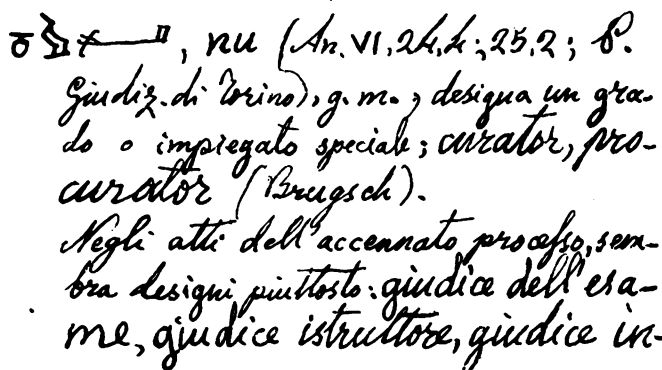 , nu (An. VI, 24,4; 25,2; P.
Giudiz. di Torino), g. m., designa un gra-
do o impiegato speciale; curator, pro-
curator (Brugsch).
Negli atti dell'accennato processo, sem-
bra designi piuttosto: giudice dell'esa-
me, giudice istruttore, giudice in-